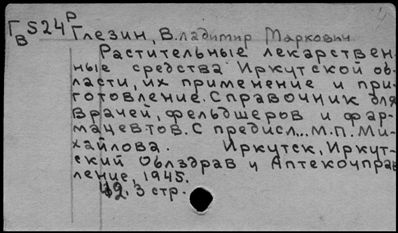 Гв S24 Р
Глезин, Владимир Маркович
Растительные лекарствен-
ные средства Иркутской об-
ласти, их применение и при-
готовление. Справочник для
врачей, фельдшеров и фар-
мацевтов. С предисл... М.П. Ми-
хайлова. Иркутск, Иркут-
ский Облздрав и Аптекоуправ
ление, 1945.
42, 3 стр.